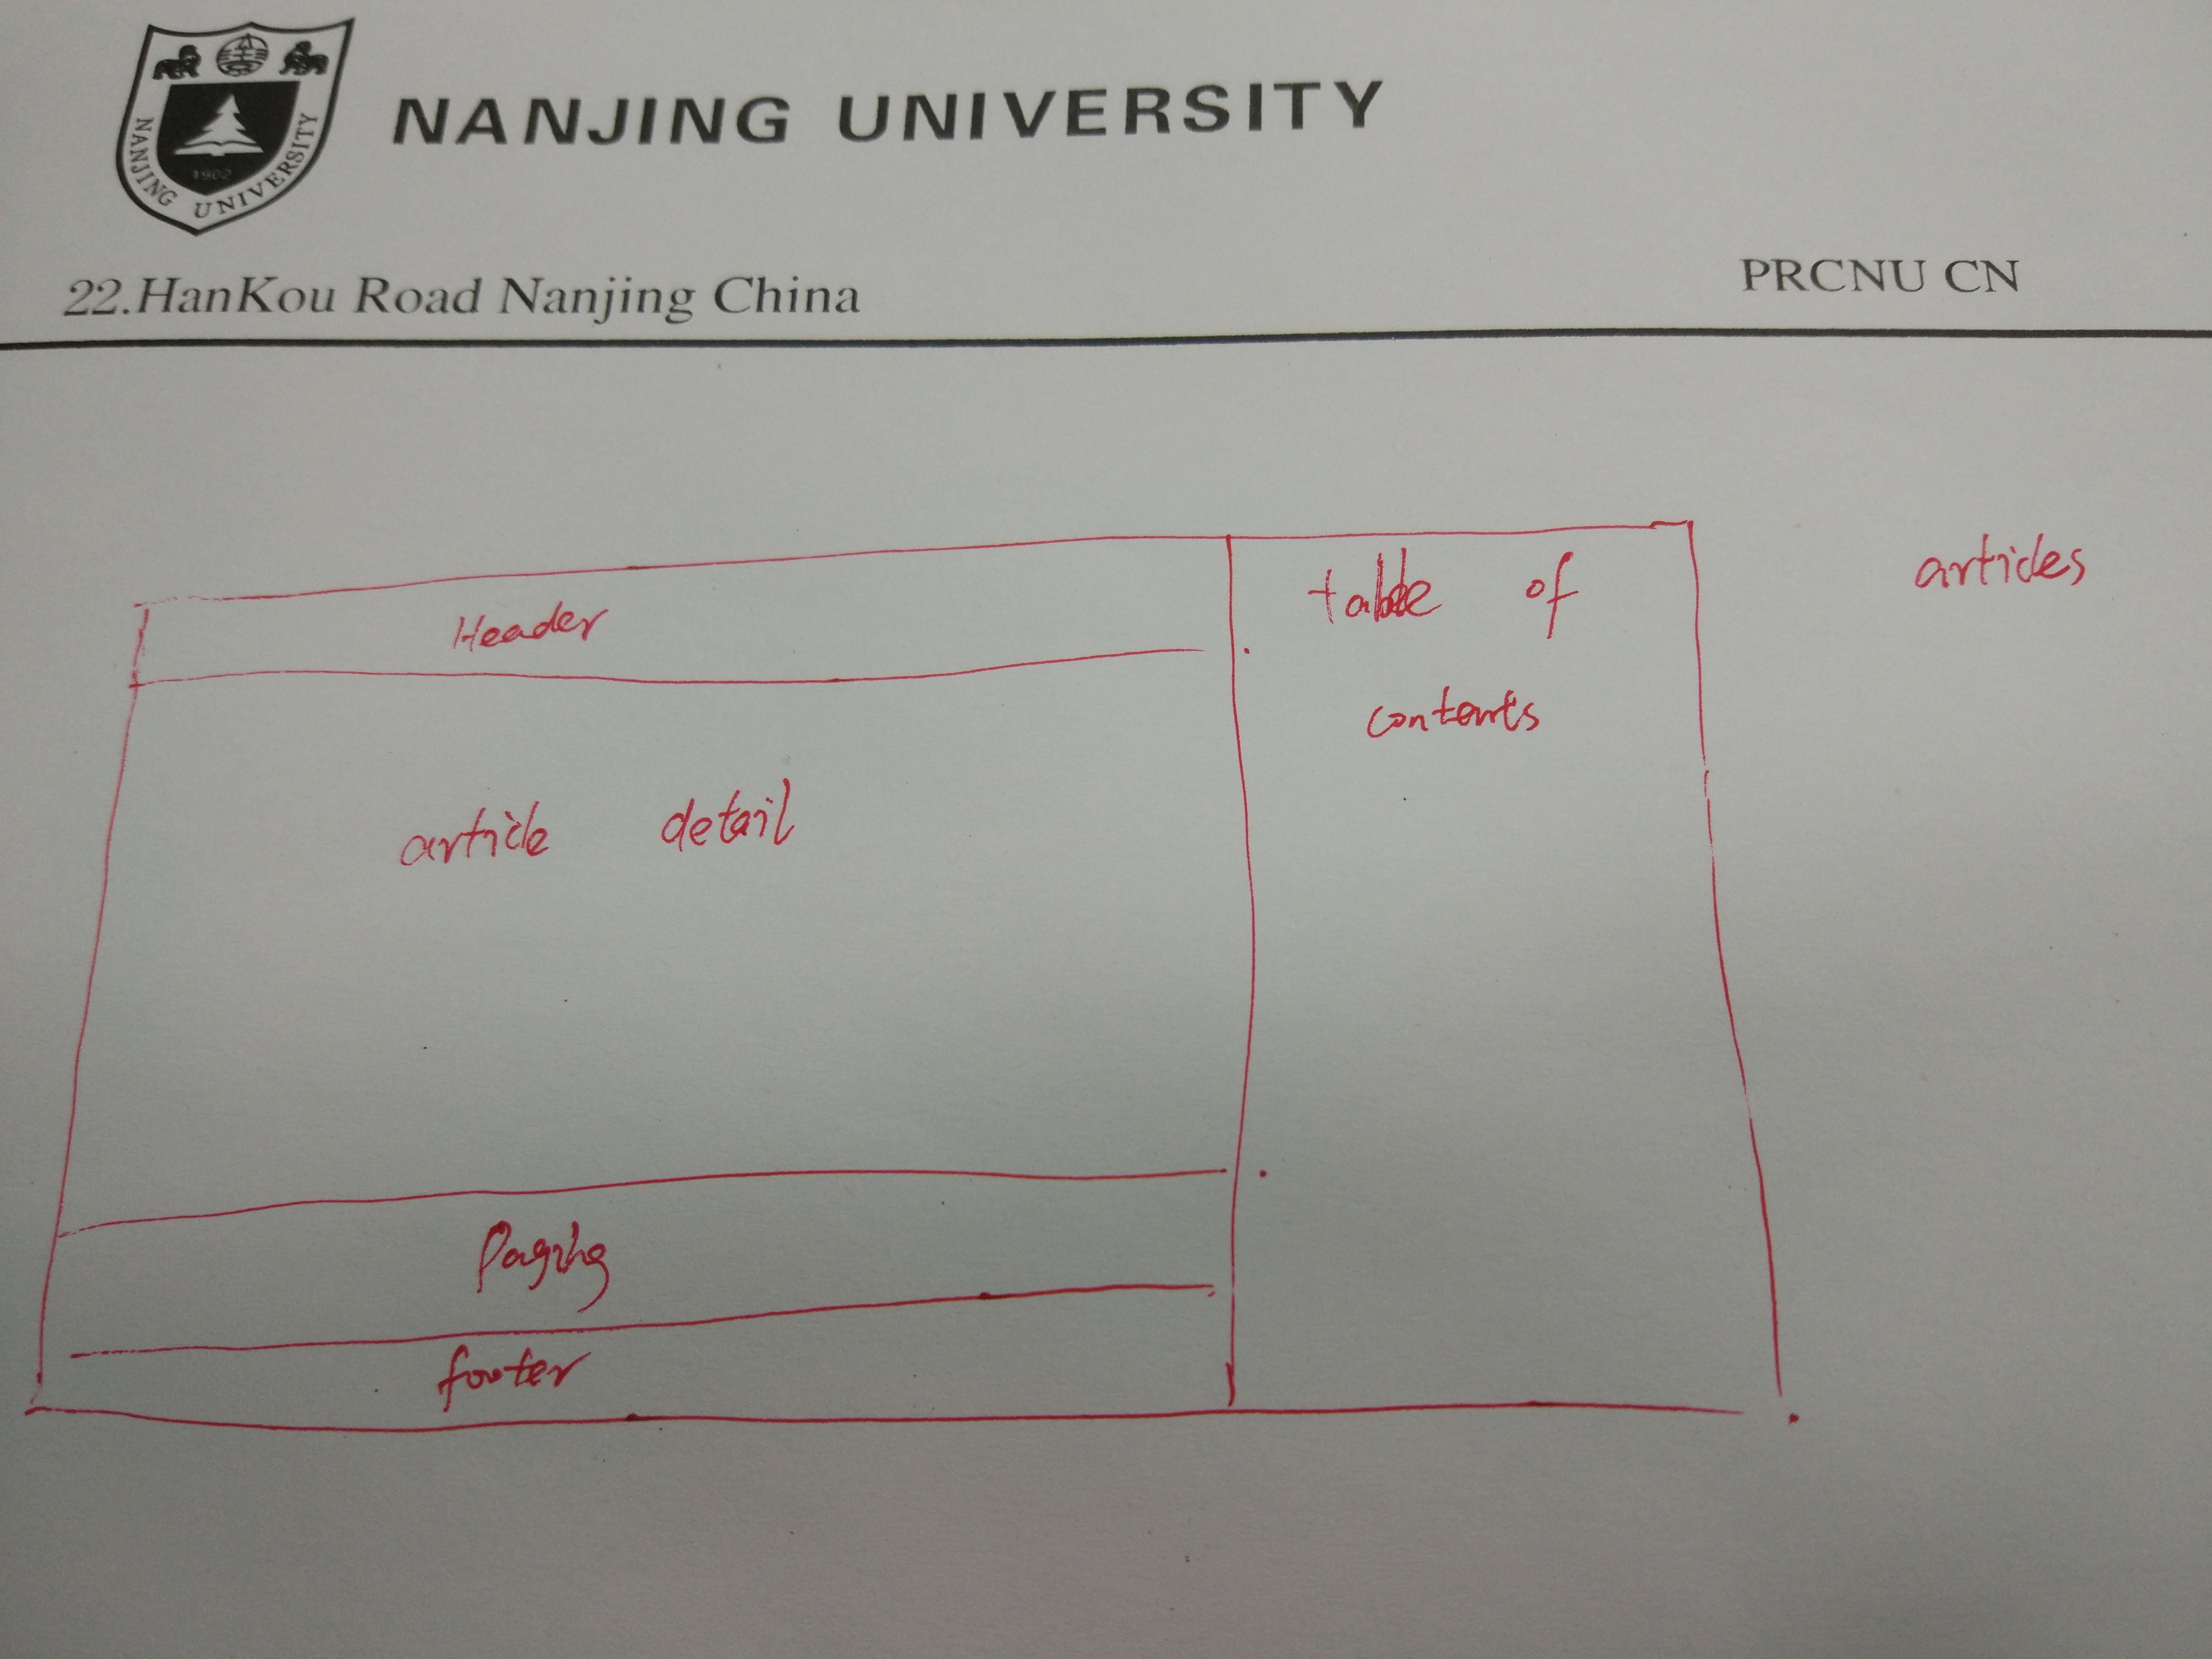 NANJING UNIVERSITY
1902
NANJING UNIVERSITY
22.HanKou Road Nanjing China
PRCNU CN
articles
Header
table of
contents
article detail
Paging
footer